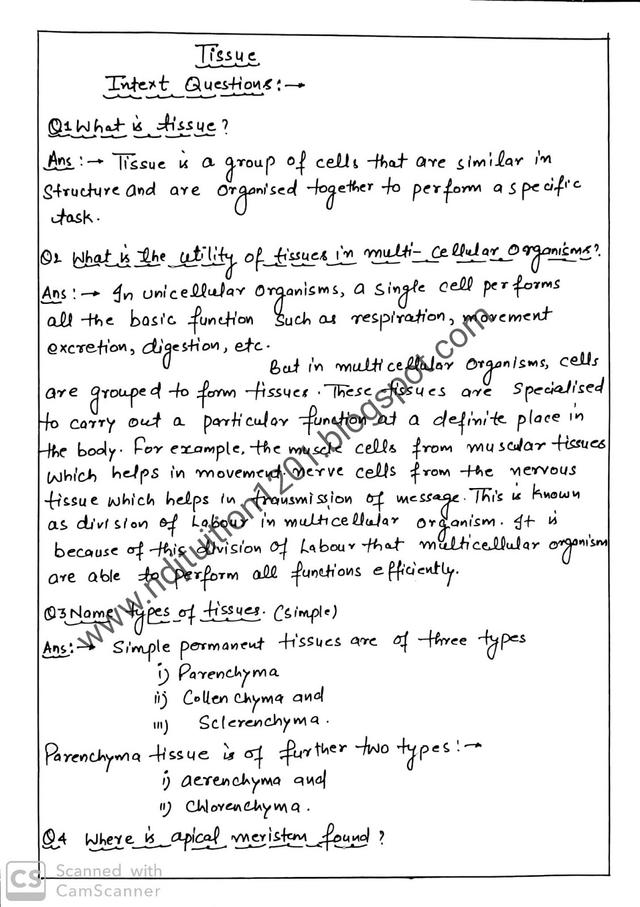 Tissue
Intext Questions:→
Q1 What is tissue?
Ans:→ Tissue is a group of cells that are similar in
structure and are organised together to perform a specific
task.
Q2 What is the utility of tissues in multi-cellular organisms?
Ans:→ In unicellular organisms, a single cell performs
all the basic function such as respiration, movement
excretion, digestion, etc.
But in multicellular organisms, cells
are grouped to form tissues. These tissues are specialised
to carry out a particular function at a definite place in
the body. For example, the muscle cells from muscular tissues
which helps in movement. nerve cells from the nervous
tissue which helps in transmission of message. This is known
as division of Labour in multicellular organism. It is
because of this division of Labour that multicellular organism
are able to perform all functions efficiently.
Q3 Name types of tissues. (simple)
Ans:→ Simple permanent tissues are of three types
i) Parenchyma
ii) Collenchyma and
iii) Sclerenchyma.
Parenchyma tissue is of further two types:→
i) aerenchyma and
ii) Chlorenchyma.
Q4 Where is apical meristem found?
www.nditution1201.blogspot.com
CS Scanned with
CamScanner